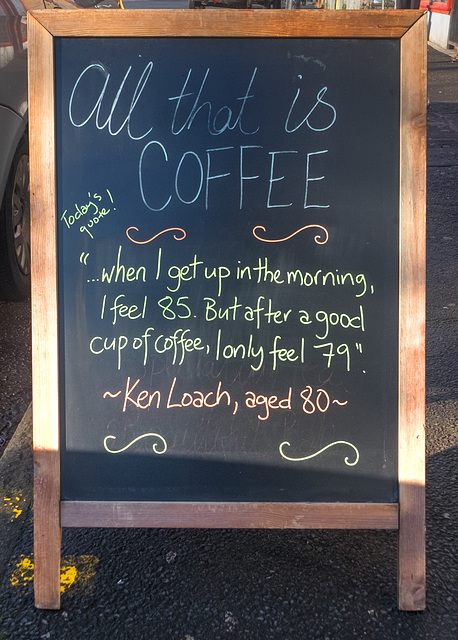 All that is
COFFEE
Today's
quote!
"...when I get up in the morning,
I feel 85. But after a good
cup of coffee, I only feel 79".
~Ken Loach, aged 80~